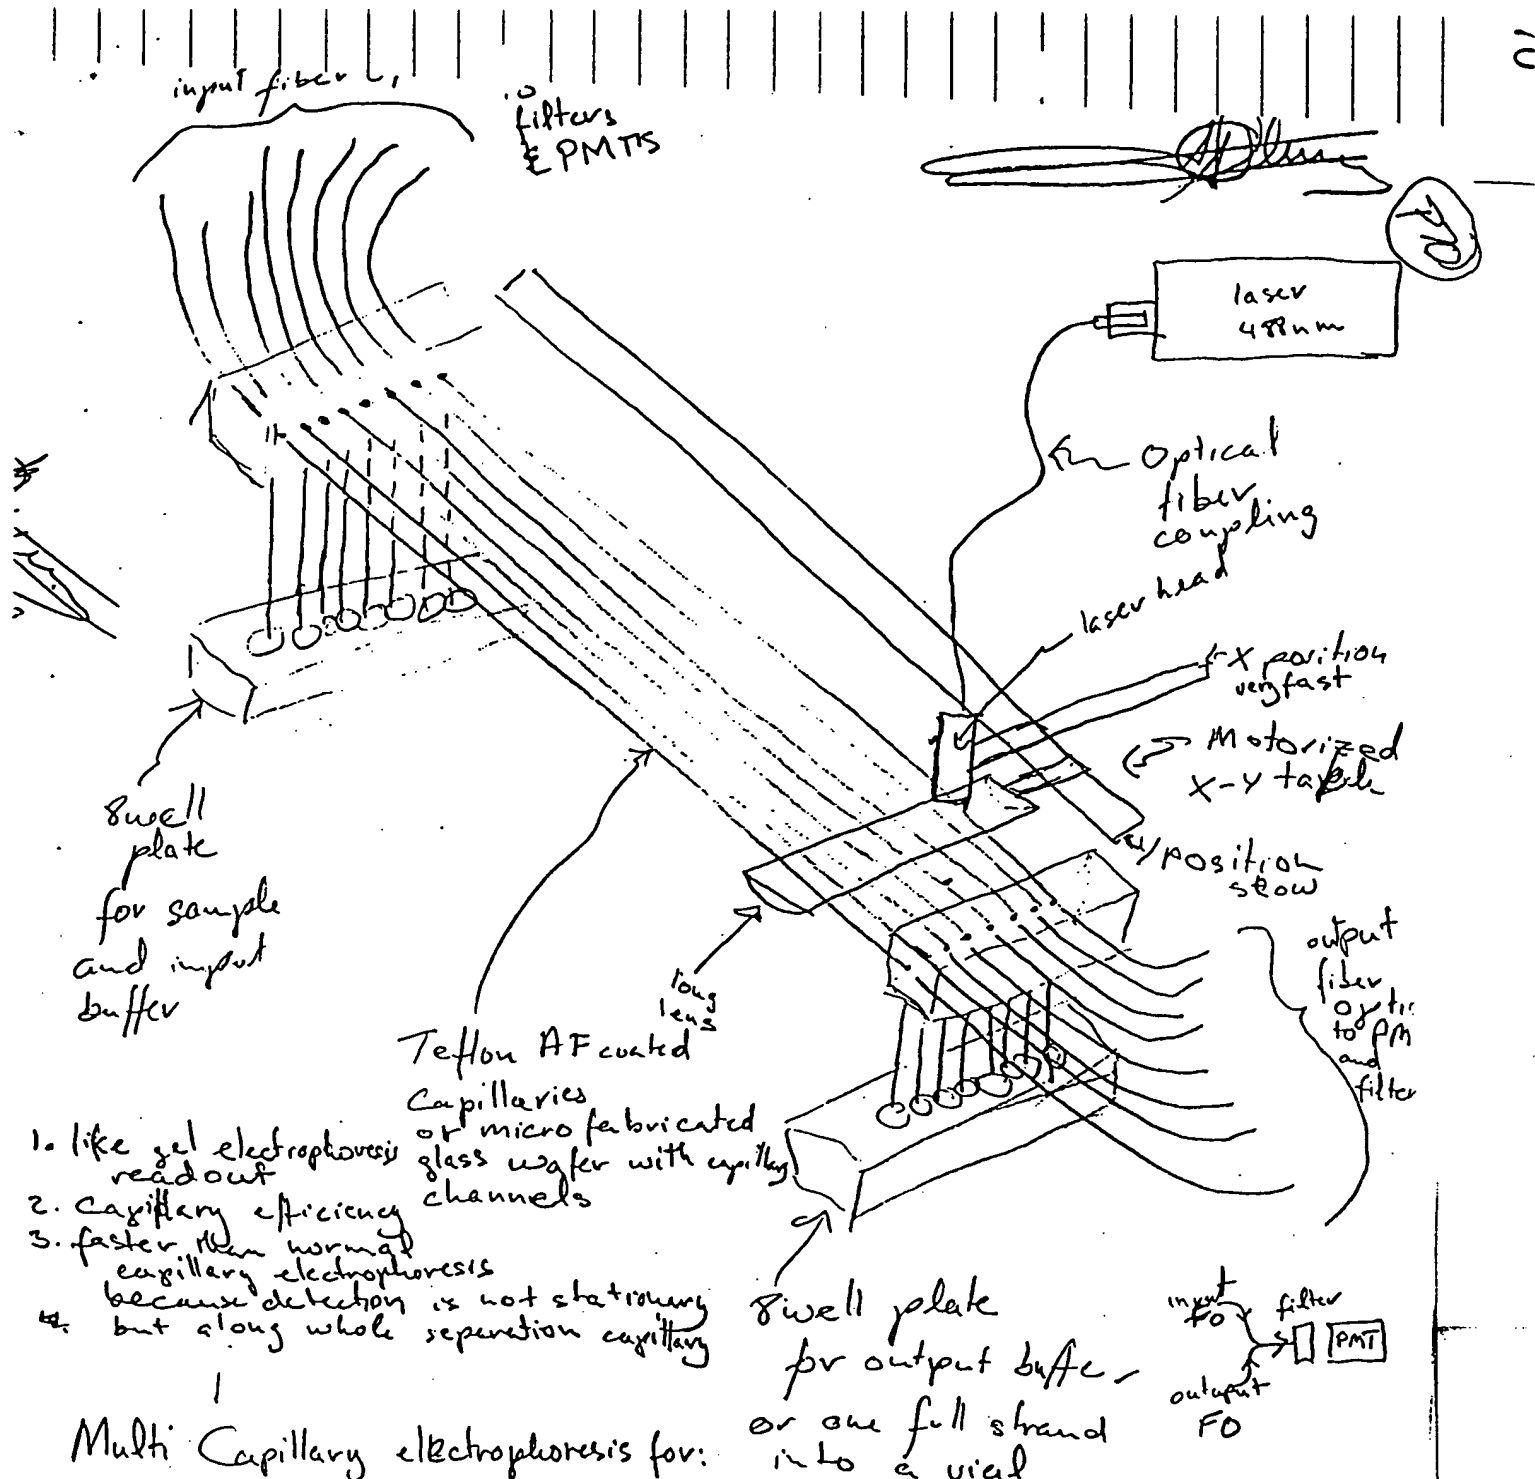 input fiber
filters
& PMT's
laser
488nm
Optical
fiber
coupling
laser head
X position
very fast
Motorized
X-Y table
y position
slow
output
fiber
optic
to PM
and
filter
8well
plate
for sample
and input
buffer
long
lens
Teflon AF coated
Capillaries
or micro fabricated
glass wafer with capillary
channels
1. like gel electrophoresis
readout
2. Capillary efficiency
3. faster than normal
capillary electrophoresis
because detection is not stationary
4. but along whole separation capillary
8well plate
for output buffer
or one full strand
into a vial
input
FO
filter
PMT
output
FO
Multi Capillary electrophoresis for: